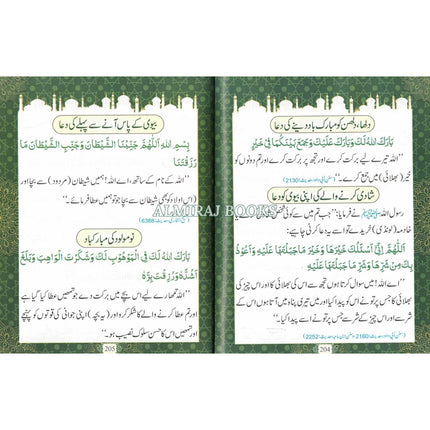 دلھا، دلھن کو مبارک باد دینے کی دعا
بَارَكَ اللهُ لَكَ وَبَارَكَ عَلَيْكَ وَجَمَعَ بَيْنَكُمَا فِي خَيْرٍ
’’اللہ تیرے لیے برکت کرے اور تجھ پر برکت کرے اور تم دونوں کو
خیر (بھلائی) میں جمع کرے۔‘‘
شادی کرنے والے کی اپنی بیوی کو دعا
رسول اللہ ﷺ نے فرمایا: ’’جب تم میں سے کوئی شخص
خادمہ (لونڈی) خریدے تو اسے یہ دعا کرنی چاہیے:
اَللّٰهُمَّ اِنِّيْ اَسْئَلُكَ خَيْرَهَا وَخَيْرَ مَا جَبَلْتَهَا عَلَيْهِ وَاَعُوْذُ
بِكَ مِنْ شَرِّهَا وَشَرِّ مَا جَبَلْتَهَا عَلَيْهِ
’’اے اللہ! میں سوال کرتا ہوں تجھ سے اس کی بھلائی کا اور اس چیز کی
بھلائی کا جس پر تو نے اسے پیدا کیا اور میں تیری پناہ میں آتا ہوں اس کے
شر سے اور اس چیز کے شر سے جس پر تو نے اسے پیدا کیا۔‘‘
204
بیوی کے پاس آنے سے پہلے کی دعا
بِسْمِ اللهِ اَللّٰهُمَّ جَنِّبْنَا الشَّيْطَانَ وَجَنِّبِ الشَّيْطَانَ مَا
رَزَقْتَنَا
’’اللہ کے نام کے ساتھ، اے اللہ! ہمیں شیطان (مردود) سے بچا اور
اس اولاد کو بھی شیطان سے بچا جو تو ہمیں عطا فرمائے۔‘‘
نومولود کی مبارکباد
بَارَكَ اللهُ لَكَ فِي الْمَوْهُوْبِ لَكَ وَشَكَرْتَ الْوَاهِبَ وَبَلَغَ
اَشُدَّهُ وَرُزِقْتَ بِرَّهُ
’’اللہ تمھارے لیے اس بچے میں برکت دے جو تمھیں عطا کیا گیا ہے اور
تم عطا کرنے والے کا شکر کرو اور (یہ بچہ) اپنی جوانی کی قوتوں کو پہنچے
اور تمھیں اس کا حسن سلوک نصیب ہو۔‘‘
205
ALMIRAJ BOOKS